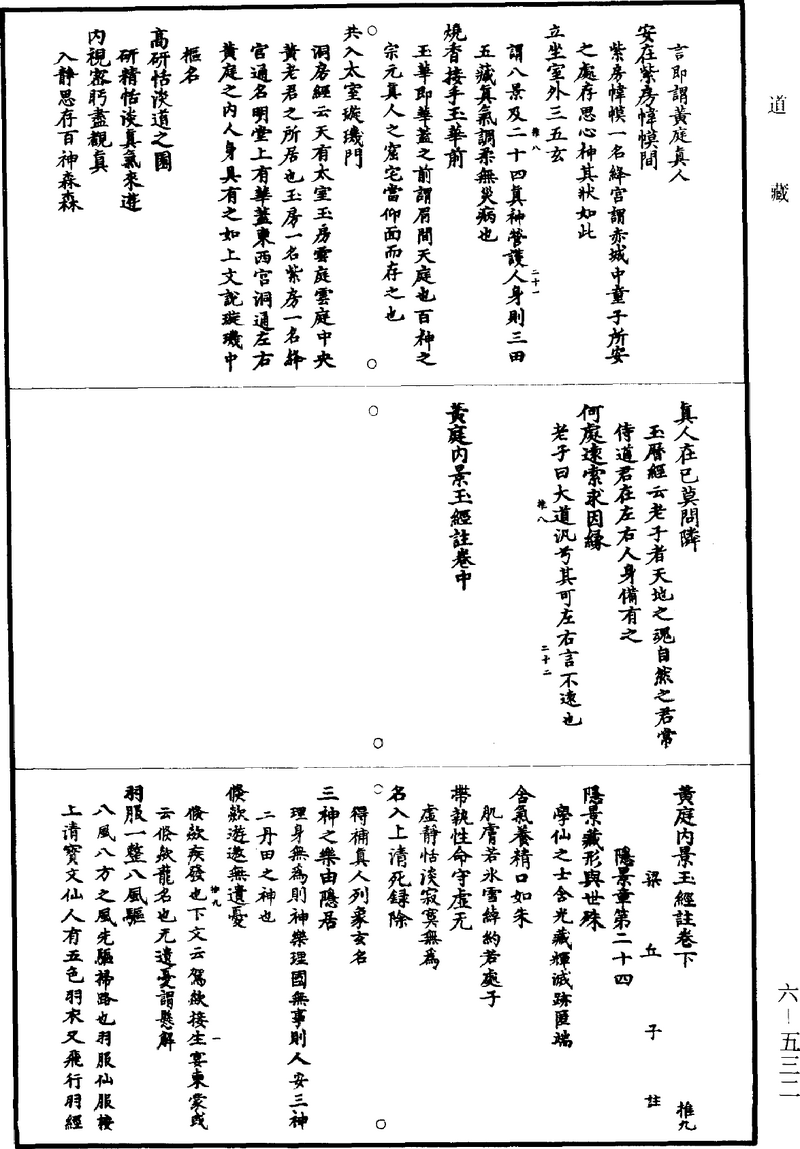 道藏
言即謂黃庭真人
安在紫房幃幙間
紫房幃幙一名絳宮謂赤城中童子所安
之處存思心神其狀如此
立坐室外三五玄
謂八景及二十四真神營護人身則三田
五藏真氣調柔無災病也
燒香接手玉華前
玉華即華蓋之前謂眉間天庭也百神之
宗元真人之窟宅當仰面而存之也
共入太室璇璣門
洞房經云天有太室玉房雲庭雲庭中央
黃老君之所居也玉房一名紫房一名絳
宮通名明堂上有華蓋東西宮洞通左右
黃庭之內人身具有之如上文說璇璣中
樞名
高研恬淡道之園
研精恬淡真氣來遊
內視密眄盡觀真
入靜思存百神森森
真人在己莫問隣
玉曆經云老子者天地之魂自然之君常
侍道君在左右人身備有之
何處遠索求因緣
老子曰大道汎兮其可左右言不遠也
黃庭內景玉經註卷中
黃庭內景玉經註卷下
推九
梁丘子註
隱景章第二十四
隱景藏形與世殊
學仙之士含光藏輝滅跡匿端
含氣養精口如朱
肌膚若氷雪綽約若處子
帶執性命守虛无
虛靜恬淡寂寞無為
名入上清死録除
得補真人列象玄名
三神之樂由隱居
理身無為則神樂理國無事則人安三神
二丹田之神也
倏欻遊遨無遺憂
倏欻疾發也下文云駕欻接生宴東蒙或
云倏欻龍名也无遺憂謂懸解
羽服一整八風驅
八風八方之風先驅掃路也羽服仙服按
上清寶文仙人有五色羽衣又飛行羽經
六－五三二